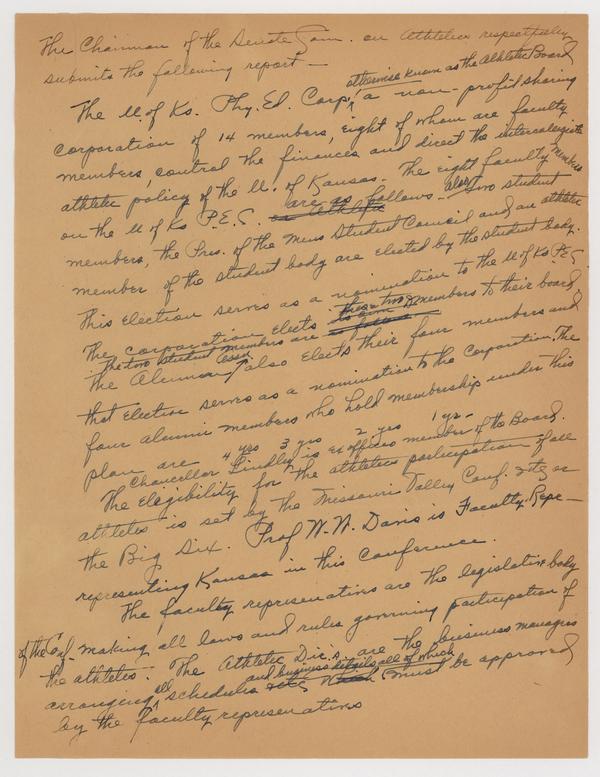 The Chairman of the Senate Com. on Athletics respectfully
submits the following report —
otherwise known as the Athletic Board
The U of Ks. Phy. Ed. Corp., a non-profit sharing
corporation of 14 members, eight of whom are faculty
members, control the finances and direct the intercollegiate
athletic policy of the U. of Kansas. The eight faculty members
on the U of Ks P.E.C. are as follows. Also two student
members, the Pres. of the Mens Student Council and an athletic
member of the student body are elected by the student body.
This election serves as a nomination to the U of Ks P.E.C
The corporation elects these two members to their board.
The two student members are
The Alumni also elects their four members and
that election serves as a nomination to the Corporation. The
four alumni members who hold membership under this
plan are 4 yrs 3 yrs 2 yrs 1 yr –
Chancellor Lindley is ex officio member of the Board.
The Elegibility for the athletics participation of all
athletes is set by the Missouri Valley Conf. or
the Big Six. Prof W. W. Davis is Faculty Repe–
representing Kansas in this Conference.
The faculty represenatives are the legislative body
of the Conf. making all laws and rules governing participation of
the athletes. The Athletic Dir.s. are the business managers
and business details all of which
arranging all schedules etc. must be approved
by the faculty represenatives